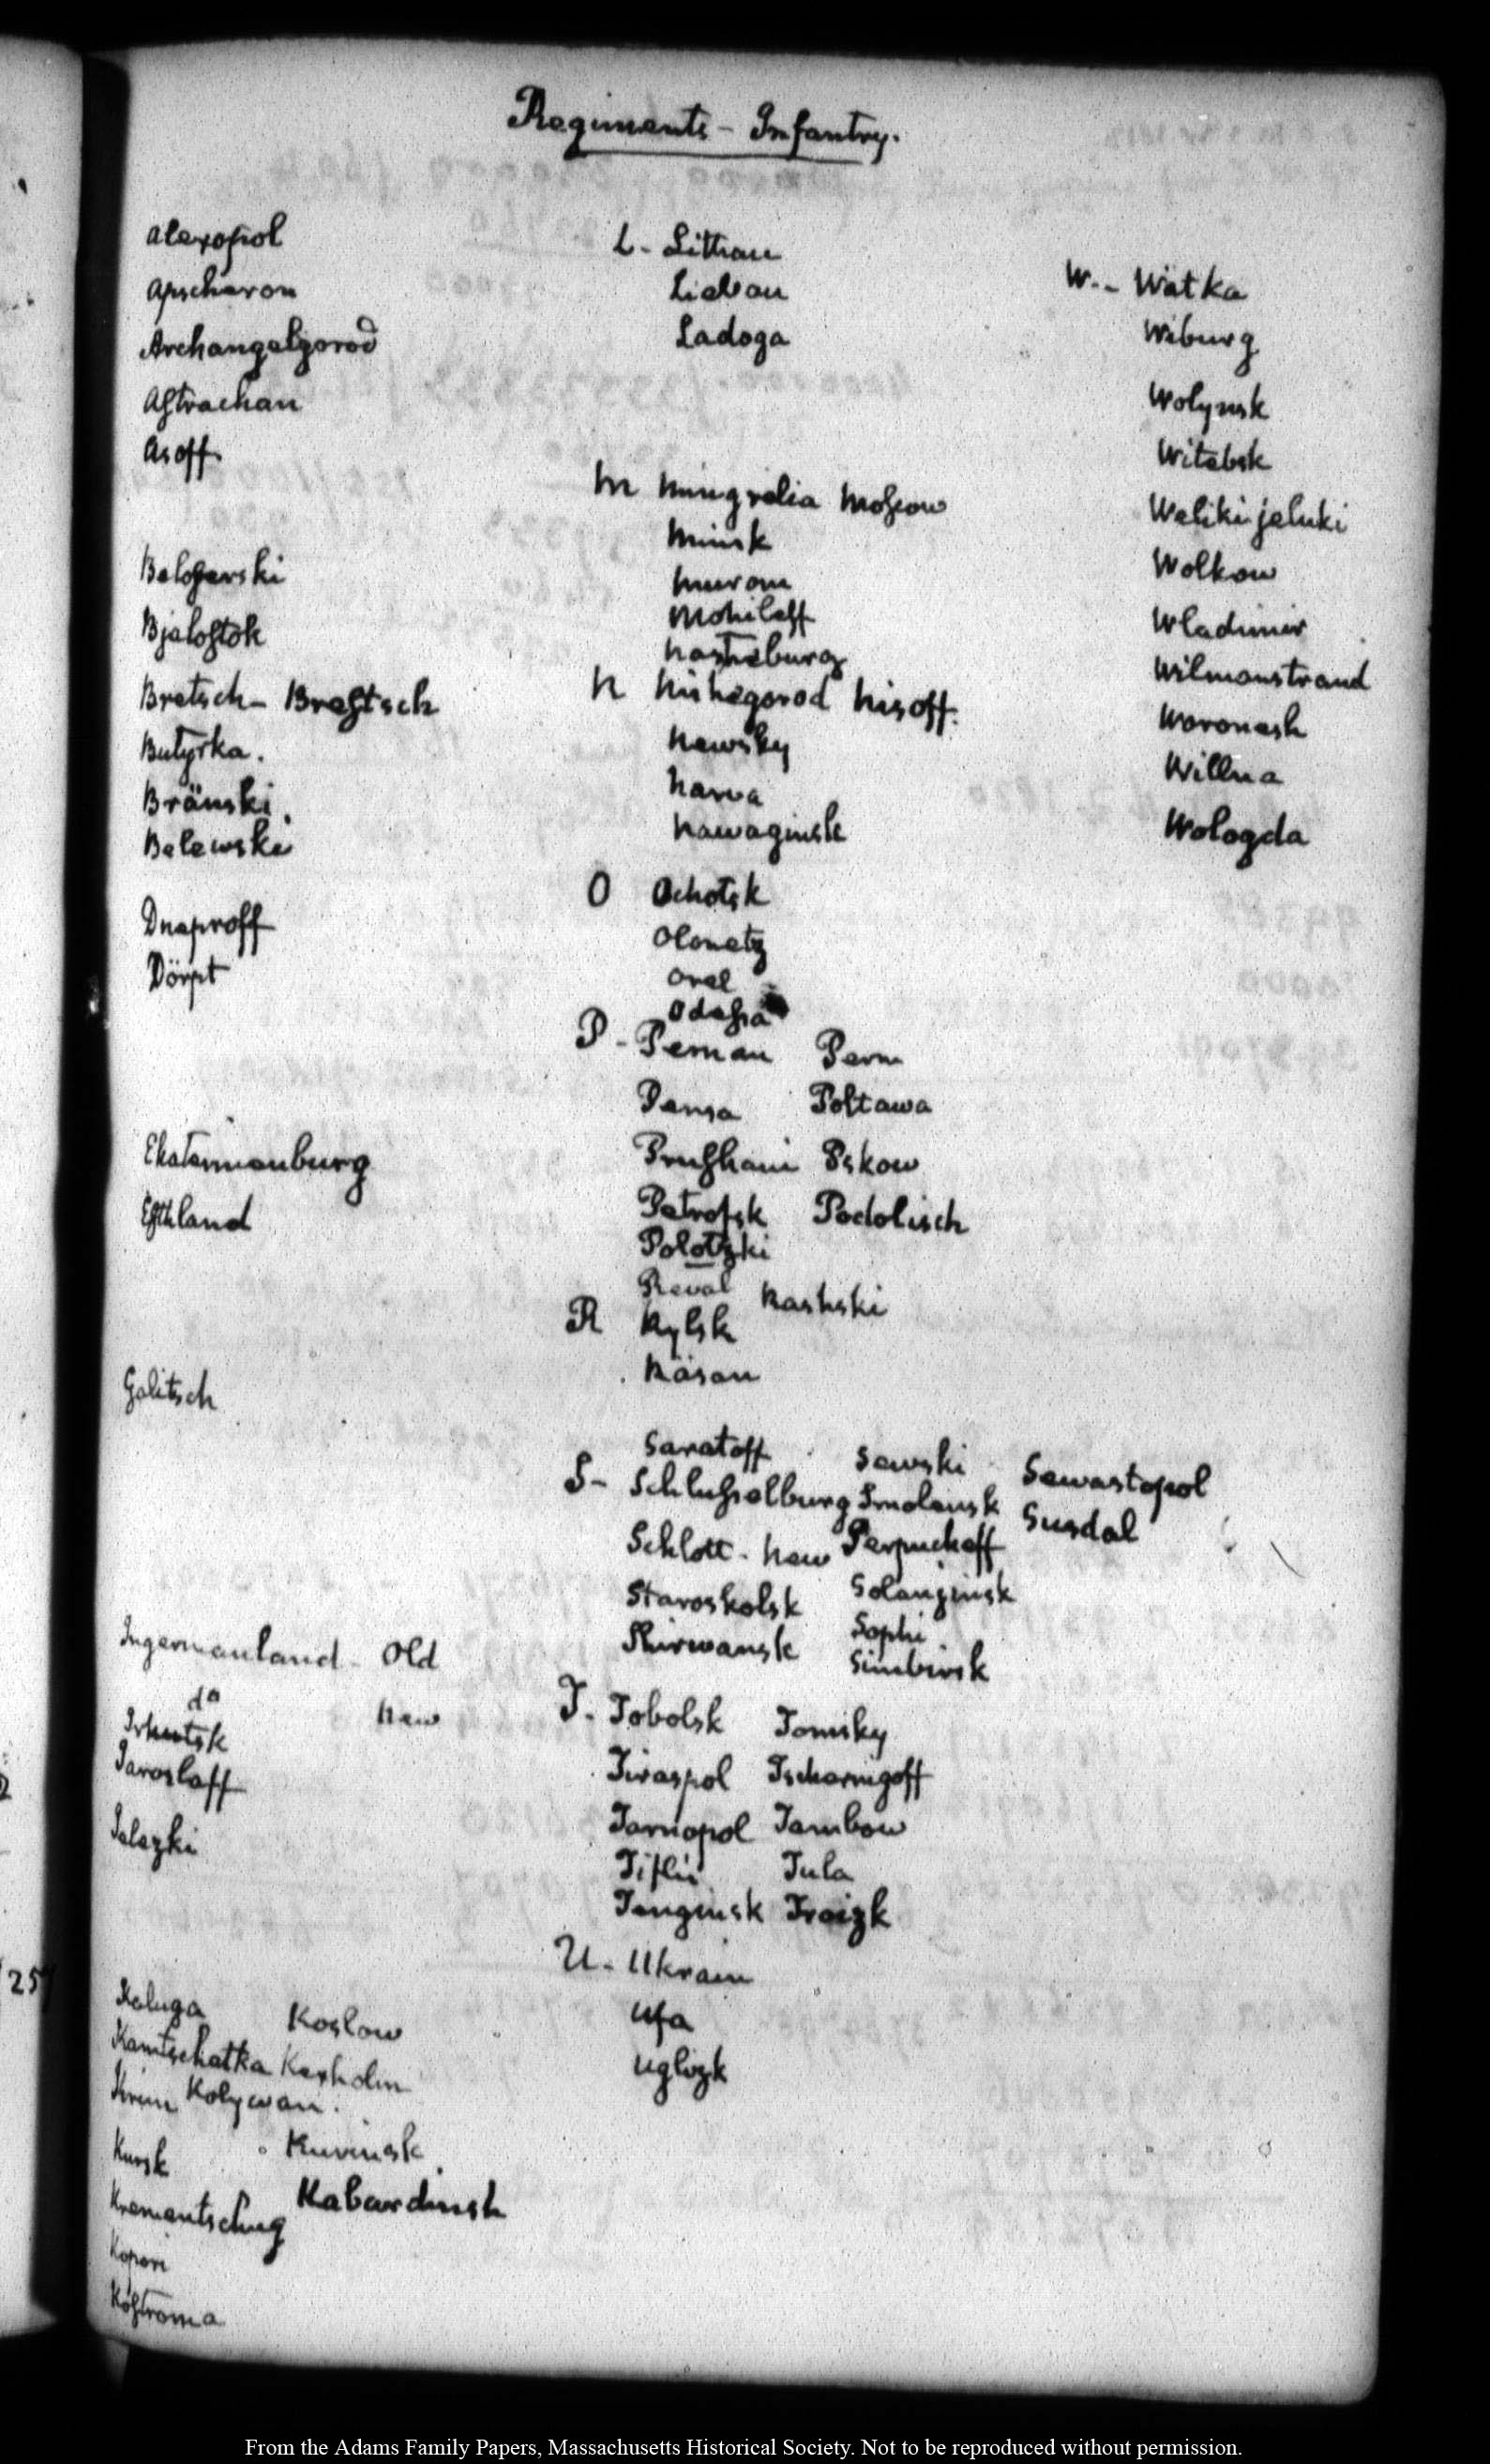 Regiments - Infantry.
Alexopol
Apscheron
Archangelgorod
Astrachan
Asoff.
Beloserski
Bjalostok
Bretsch - Brestsch
Butyrka.
Bränski.
Belewski
Dneproff
Dörpt
Ekaterinenburg
Esthland
Galitsch
Ingermanland - Old
do New
Irkutsk
Jaroslaff
Jelezki
Kaluga Koslow
Kamtschatka Kexholm
Krim Kolywan.
Kursk Kurinsk
Krementschug Kabardinsk
Kopori
Kostroma
L - Litthau
Liebau
Ladoga
M Mingrelia Moscow
Minsk
Murom
Mohileff
Nastheburg
N Nishegorod Nisoff.
Newsky
Narva
Nawaginsk
O Ochotsk
Olonetz
Orel
Odessa
P - Pernau Perm
Pensa Poltawa
Prushani Pskow
Petrofsk Podolisch
Polotzki
Reval Rashski
R Rylsk
Räsan
Saratoff Sewski Sewastopol
S - Schlusselburg Smolensk Susdal
Schlott - New Serpuchoff
Staroskolsk Selenginsk
Shirwansk Sophi
Simbirsk
T. Tobolsk Tomsky
Tiraspol Tschernigoff
Tarnopol Tambow
Tiflis Tula
Tenginsk Troizk
U - Ukrain
Ufa
Uglizk
W. - Wätka
Wiburg
Wolynsk
Witebsk
Welikijeluki
Wolkow
Wladimir
Wilmanstrand
Woronesh
Willna
Wologda
257
From the Adams Family Papers, Massachusetts Historical Society. Not to be reproduced without permission.